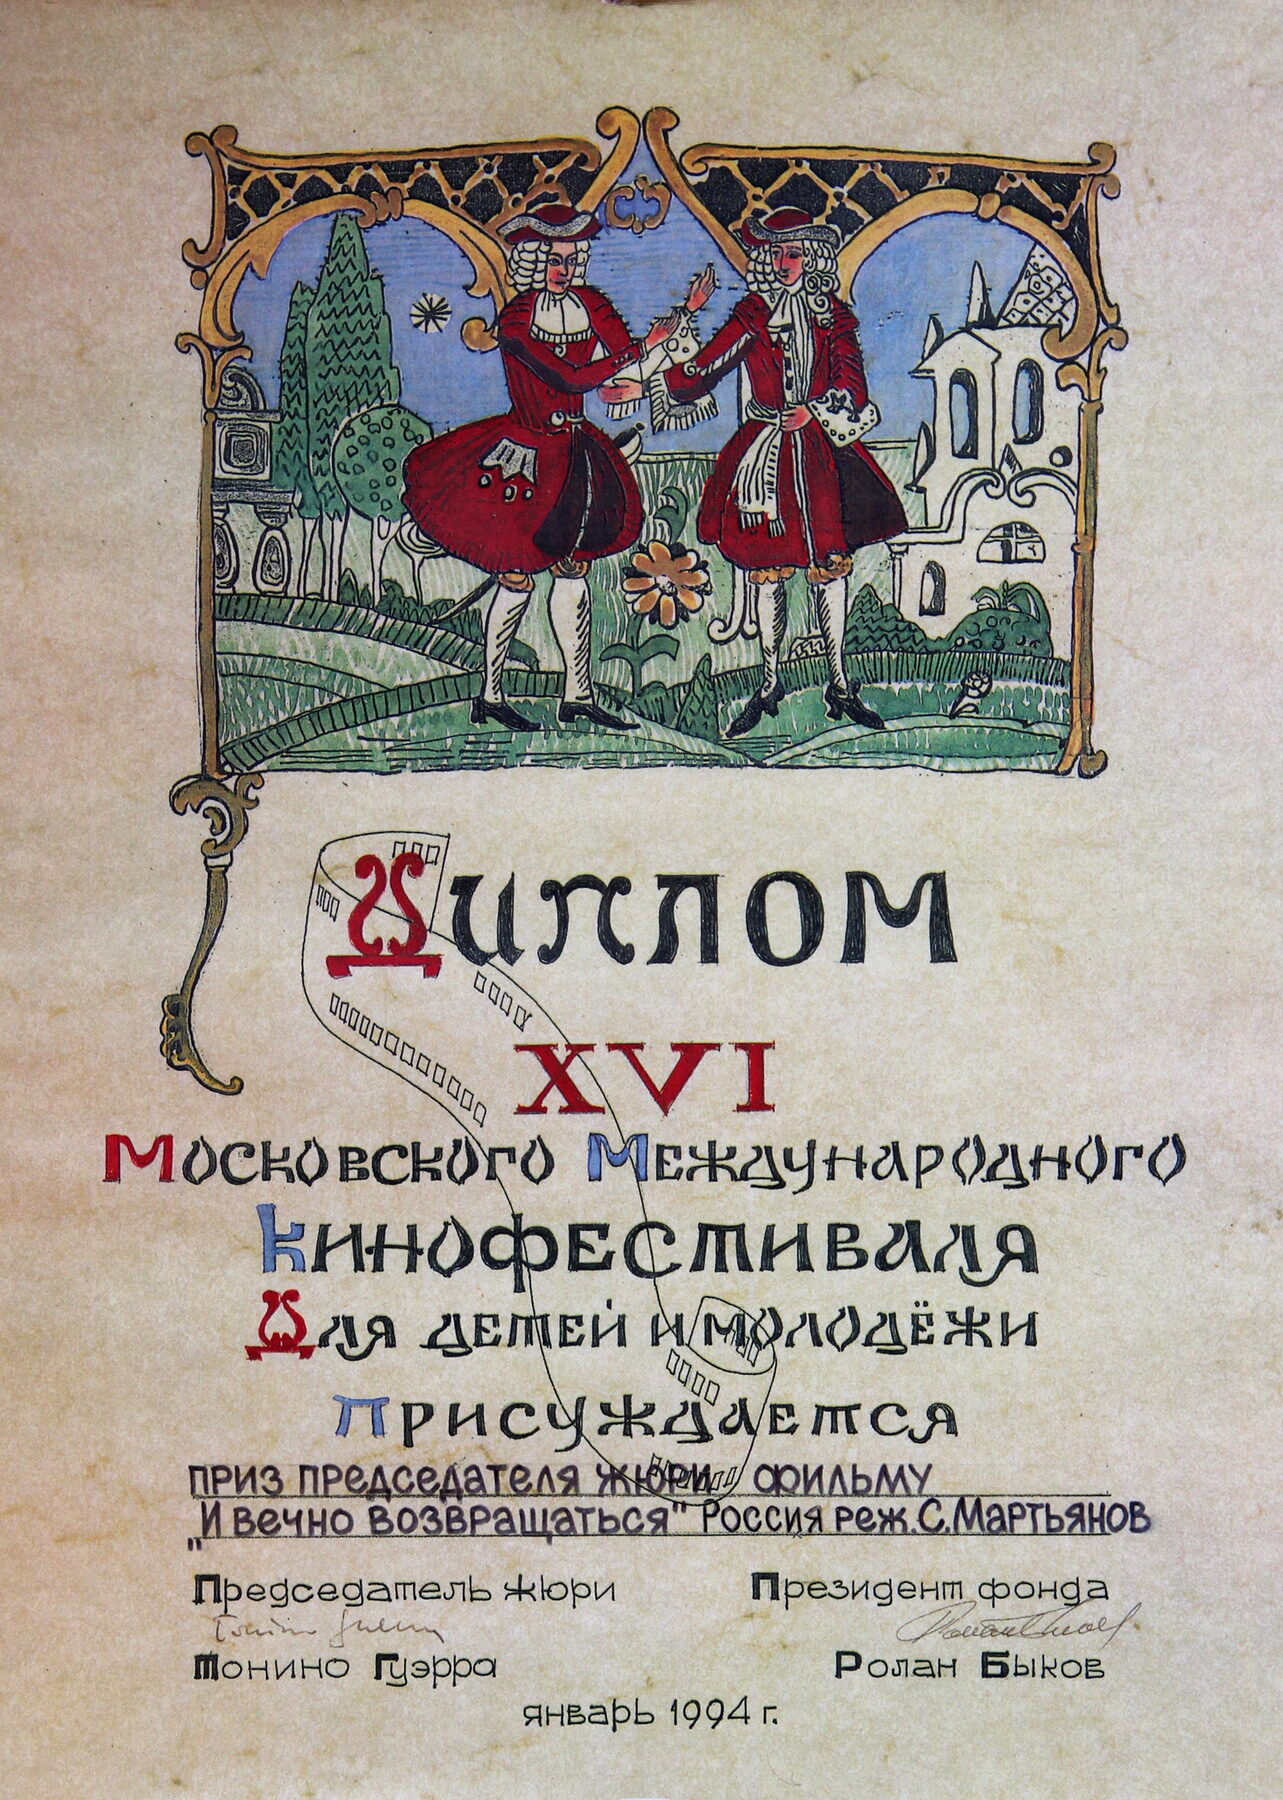 Диплом
XVI
Московского Международного
Кинофестиваля
Для детей и молодёжи
присуждается
приз председателя жюри фильму
„И вечно возвращаться" Россия реж. С. Мартьянов
Председатель жюри Президент фонда
Тонино Гуэрра Ролан Быков
январь 1994 г.